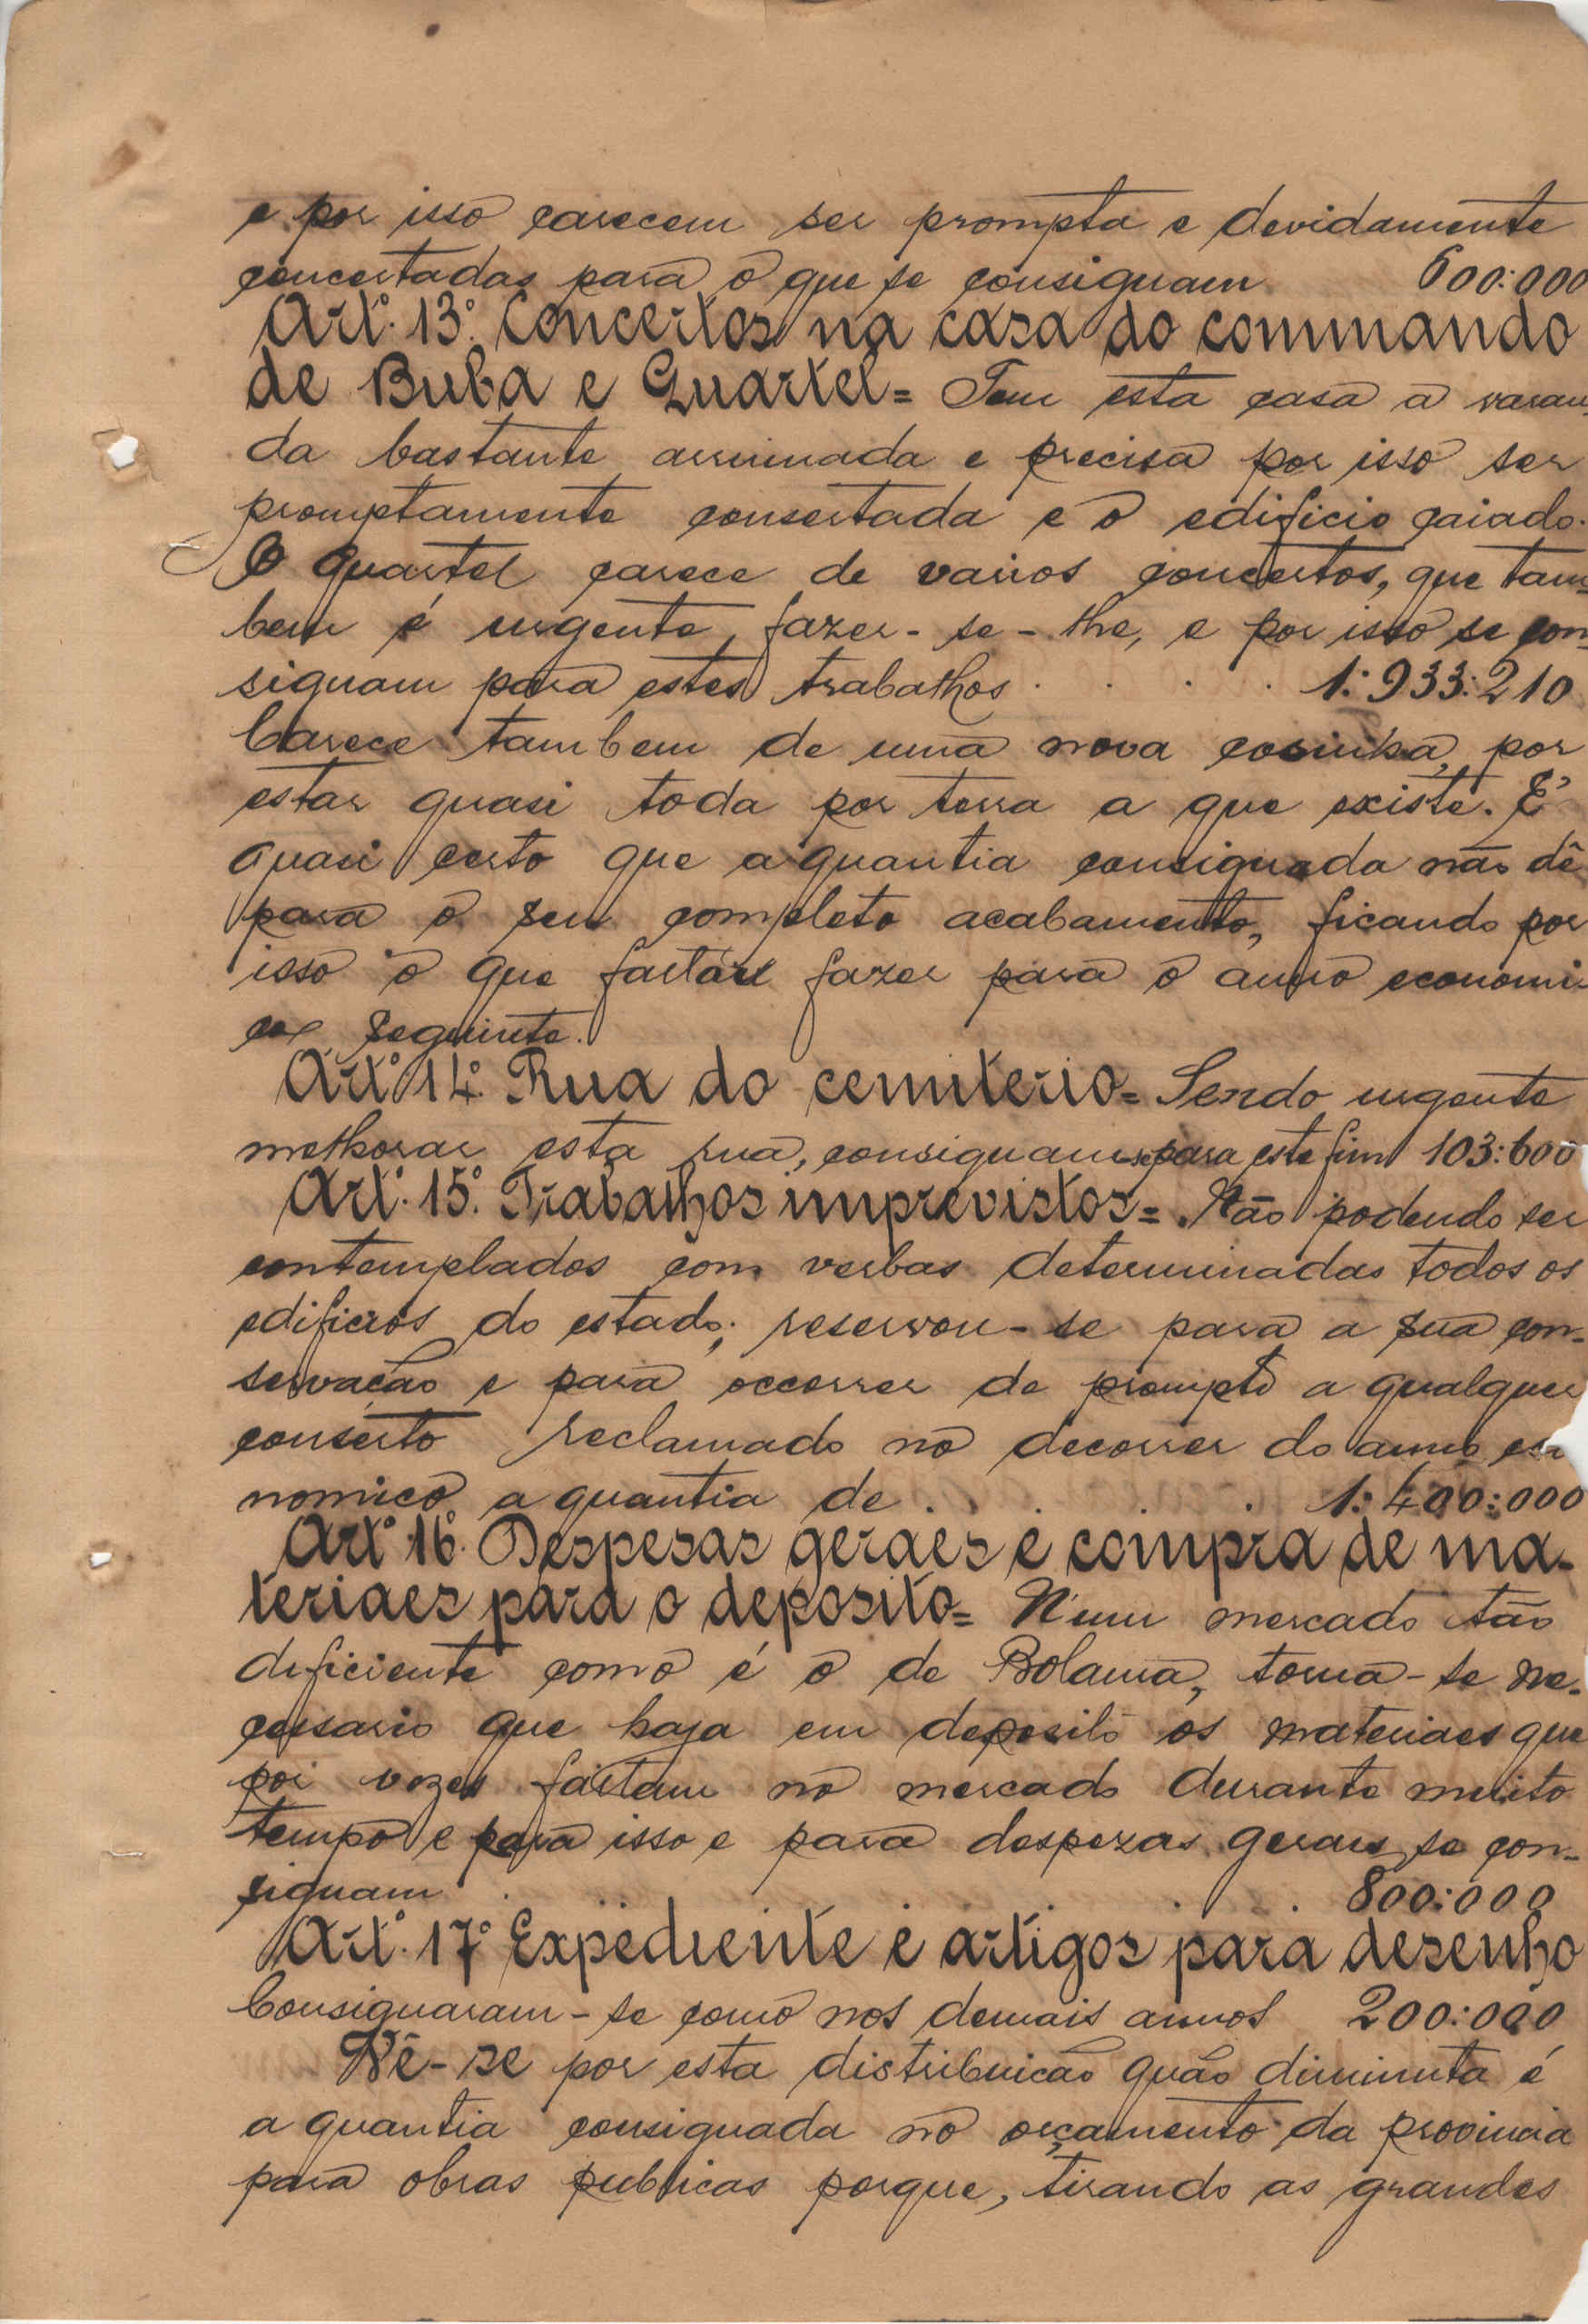 e por isso carecem ser prompta e devidamente
concertadas para o que se consignam 600:000
Artº. 13º. Concertos na casa do commando
de Buba e Quartel = Tem esta casa a varan-
da bastante arruinada e precisa por isso ser
promptamente consertada e o edificio caiado.
O quartel carece de varios concertos, que tam-
bem é urgente, fazer-se-lhe, e por isso se con-
signam para estes trabalhos . . . . 1:933:210
Carece tambem de uma nova cosinha, por
estar quasi toda por terra a que existe. É
quasi certo que a quantia consignada não dê
para o seu completo acabamento, ficando por
isso o que faltar fazer para o anno economi-
co seguinte.
Artº 14º. Rua do cemiterio = Sendo urgente
melhorar esta rua, consignam se para este fim 103:600
Artº. 15º. Trabalhos imprevistos = Não podendo ser
contemplados com verbas determinadas todos os
edificios do estado; reservou-se para a sua con-
servação e para occorrer de prompto a qualquer
conserto reclamado no decorrer do anno eco
nomico a quantia de . . . . 1:400:000
Artº 16º. Despesas geraes e compra de ma-
teriaes para o deposito = N'um mercado tão
deficiente como é o de Bolama, torna-se ne-
cessario que haja em deposito os materiaes que
por vezes faltam no mercado durante muito
tempo e para isso e para despezas geraes se con-
signam . . . . 800:000
Artº. 17º Expediente e artigos para desenho
Consignaram-se como nos demais annos 200:000
Vê-se por esta distribuicão quão diminuta é
a quantia consignada no orçamento da provincia
para obras publicas porque, tirando as grandes